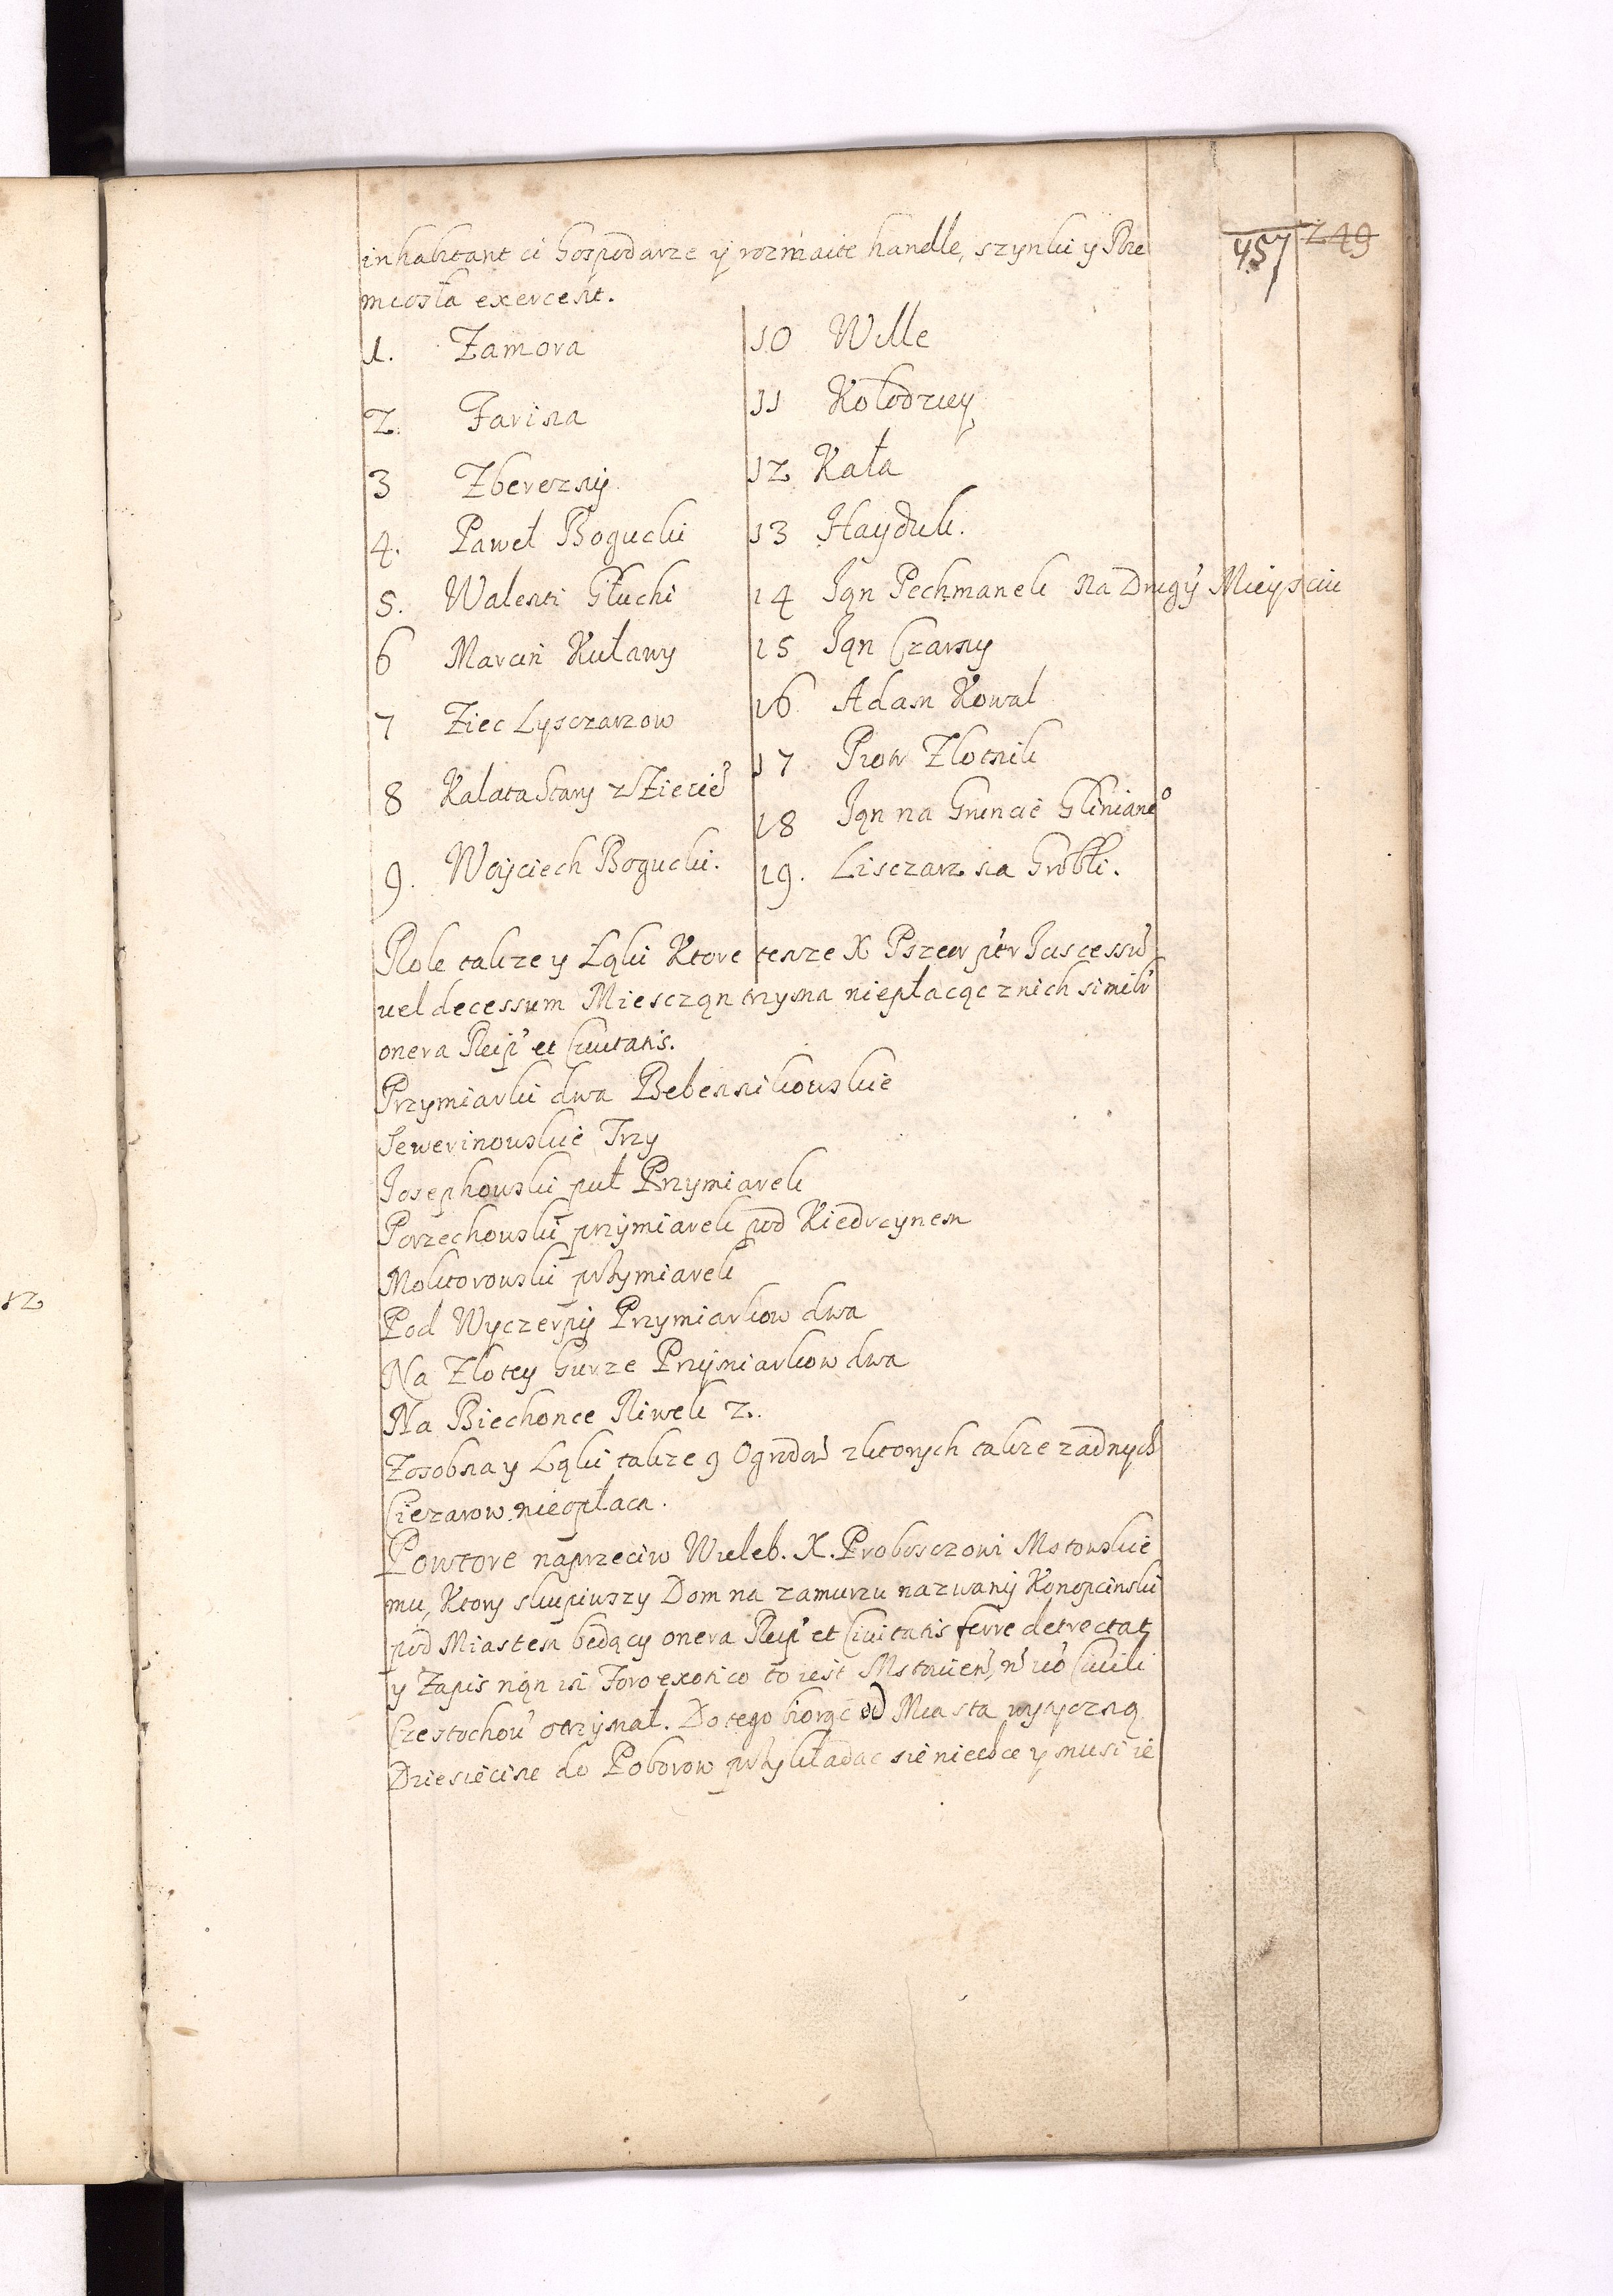 457 249
inhabitant ci Gospodarze y rozmaite handle, szynki y Rze
miosła exercent.
1. Zamora
2. Farina
3 Zbereзny
4. Paweł Bogucki
5. Walenti Głuchi
6 Marcin Kuławy
7 Ziec Lysczarzow
8 Kalata Stary z Zieciē
9. Woyciech Bogucki.
10 Wille
11 Kołodziey
12 Kała
13 Hayduk.
14 Jan Pechmanek na Drugỹ Mieyscu
15 Jan Czarny
16 Adam Kowal
17 Piotr Zlotnik
18 Jan na Gruncie Gliniane°
19. Lisczarz na Grobli.
Role takze y Łąki Ktore tenze X Pszeor
vel decessum Miesczan trzyma niepłacąc z nich simili
onera Reip' et Civitatis.
Przymiarki dwa Bebennikowskie
Sewerinowskie Trzy
Josephowski puł Przymiarek
Porzechowski przymiarek pod Kiedrzynem
Molitorowski przymiarek
Pod Wyczerpy Przymiarkow dwa
Na Zlotey Gurze Przymiarkow dwa
Na Biechonce Niwek 2.
Zosobna y Łąki takze 9 Ogrodow z ktorych takze zadnych
Ciezarow nieopłaca.
Powtore naprzeciw Wieleb. X. Proboszczowi Mstowskie
mu, Ktory skupiwszy Dom na zamurzu nazwany Konopcinski
pod Miastem bedący onera Reip' et Civitatis ferre detrectat
y Zapis nań in Foro exotico to iest Mstovień, ń Civili
Czestochow' otrzymał. Do tego biorąc od Miasta wytyczną
Dziesiecine do Poborow przykładac sie niechce y musi ie
12